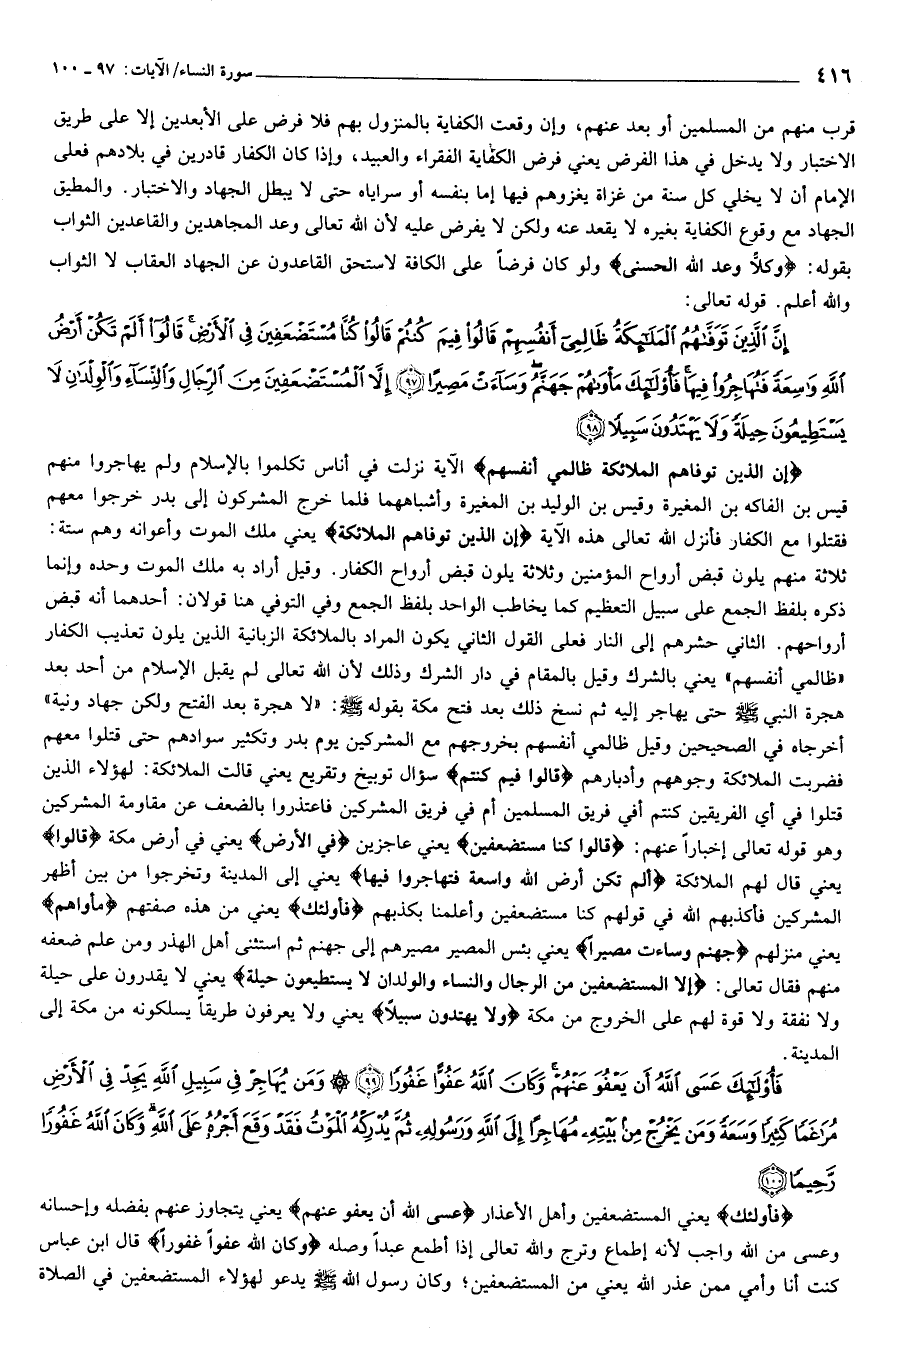 ٤١٦ سورة النساء/ الآيات: ٩٧ ـ ١٠٠
قرب منهم من المسلمين أو بعد عنهم، وإن وقعت الكفاية بالمنزول بهم فلا فرض على الأبعدين إلا على طريق
الاختبار ولا يدخل في هذا الفرض يعني فرض الكفاية الفقراء والعبيد، وإذا كان الكفار قادرين في بلادهم فعلى
الإمام أن لا يخلي كل سنة من غزاة يغزوهم فيها إما بنفسه أو سراياه حتى لا يبطل الجهاد والاختبار. والمطيق
الجهاد مع وقوع الكفاية بغيره لا يقعد عنه ولكن لا يفرض عليه لأن الله تعالى وعد المجاهدين والقاعدين الثواب
بقوله: ﴿وكلاًّ وعد الله الحسنى﴾ ولو كان فرضاً على الكافة لاستحق القاعدون عن الجهاد العقاب لا الثواب
والله أعلم. قوله تعالى:
إِنَّ ٱلَّذِينَ تَوَفَّىٰهُمُ ٱلْمَلَـٰٓئِكَةُ ظَالِمِىٓ أَنفُسِهِمْ قَالُوا۟ فِيمَ كُنتُمْ قَالُوا۟ كُنَّا مُسْتَضْعَفِينَ فِى ٱلْأَرْضِ ۚ قَالُوٓا۟ أَلَمْ تَكُنْ أَرْضُ
ٱللَّهِ وَٰسِعَةً فَتُهَاجِرُوا۟ فِيهَا ۚ فَأُو۟لَـٰٓئِكَ مَأْوَىٰهُمْ جَهَنَّمُ ۖ وَسَآءَتْ مَصِيرًا ﴿٩٧﴾ إِلَّا ٱلْمُسْتَضْعَفِينَ مِنَ ٱلرِّجَالِ وَٱلنِّسَآءِ وَٱلْوِلْدَٰنِ لَا
يَسْتَطِيعُونَ حِيلَةً وَلَا يَهْتَدُونَ سَبِيلًا ﴿٩٨﴾
﴿إن الذين توفاهم الملائكة ظالمي أنفسهم﴾ الآية نزلت في أناس تكلموا بالإسلام ولم يهاجروا منهم
قيس بن الفاكه بن المغيرة وقيس بن الوليد بن المغيرة وأشباههما فلما خرج المشركون إلى بدر خرجوا معهم
فقتلوا مع الكفار فأنزل الله تعالى هذه الآية ﴿إن الذين توفاهم الملائكة﴾ يعني ملك الموت وأعوانه وهم ستة:
ثلاثة منهم يلون قبض أرواح المؤمنين وثلاثة يلون قبض أرواح الكفار. وقيل أراد به ملك الموت وحده وإنما
ذكره بلفظ الجمع على سبيل التعظيم كما يخاطب الواحد بلفظ الجمع وفي التوفي هنا قولان: أحدهما أنه قبض
أرواحهم. الثاني حشرهم إلى النار فعلى القول الثاني يكون المراد بالملائكة الزبانية الذين يلون تعذيب الكفار
«ظالمي أنفسهم» يعني بالشرك وقيل بالمقام في دار الشرك وذلك لأن الله تعالى لم يقبل الإسلام من أحد بعد
هجرة النبي ﷺ حتى يهاجر إليه ثم نسخ ذلك بعد فتح مكة بقوله ﷺ: «لا هجرة بعد الفتح ولكن جهاد ونية»
أخرجاه في الصحيحين وقيل ظالمي أنفسهم بخروجهم مع المشركين يوم بدر وتكثير سوادهم حتى قتلوا معهم
فضربت الملائكة وجوههم وأدبارهم ﴿قالوا فيم كنتم﴾ سؤال توبيخ وتقريع يعني قالت الملائكة: لهؤلاء الذين
قتلوا في أي الفريقين كنتم أفي فريق المسلمين أم في فريق المشركين فاعتذروا بالضعف عن مقاومة المشركين
وهو قوله تعالى إخباراً عنهم: ﴿قالوا كنا مستضعفين﴾ يعني عاجزين ﴿في الأرض﴾ يعني في أرض مكة ﴿قالوا﴾
يعني قال لهم الملائكة ﴿ألم تكن أرض الله واسعة فتهاجروا فيها﴾ يعني إلى المدينة وتخرجوا من بين أظهر
المشركين فأكذبهم الله في قولهم كنا مستضعفين وأعلمنا بكذبهم ﴿فأولئك﴾ يعني من هذه صفتهم ﴿مأواهم﴾
يعني منزلهم ﴿جهنم وساءت مصيراً﴾ يعني بئس المصير مصيرهم إلى جهنم ثم استثنى أهل الهذر ومن علم ضعفه
منهم فقال تعالى: ﴿إلا المستضعفين من الرجال والنساء والولدان لا يستطيعون حيلة﴾ يعني لا يقدرون على حيلة
ولا نفقة ولا قوة لهم على الخروج من مكة ﴿ولا يهتدون سبيلاً﴾ يعني ولا يعرفون طريقاً يسلكونه من مكة إلى
المدينة.
فَأُو۟لَـٰٓئِكَ عَسَى ٱللَّهُ أَن يَعْفُوَ عَنْهُمْ ۚ وَكَانَ ٱللَّهُ عَفُوًّا غَفُورًا ﴿٩٩﴾ ۞ وَمَن يُهَاجِرْ فِى سَبِيلِ ٱللَّهِ يَجِدْ فِى ٱلْأَرْضِ
مُرَٰغَمًا كَثِيرًا وَسَعَةً ۚ وَمَن يَخْرُجْ مِنۢ بَيْتِهِۦ مُهَاجِرًا إِلَى ٱللَّهِ وَرَسُولِهِۦ ثُمَّ يُدْرِكْهُ ٱلْمَوْتُ فَقَدْ وَقَعَ أَجْرُهُۥ عَلَى ٱللَّهِ ۗ وَكَانَ ٱللَّهُ غَفُورًا
رَّحِيمًا ﴿١٠٠﴾
﴿فأولئك﴾ يعني المستضعفين وأهل الأعذار ﴿عسى الله أن يعفو عنهم﴾ يعني يتجاوز عنهم بفضله وإحسانه
وعسى من الله واجب لأنه إطماع وترج والله تعالى إذا أطمع عبداً وصله ﴿وكان الله عفواً غفوراً﴾ قال ابن عباس
كنت أنا وأمي ممن عذر الله يعني من المستضعفين؛ وكان رسول الله ﷺ يدعو لهؤلاء المستضعفين في الصلاة